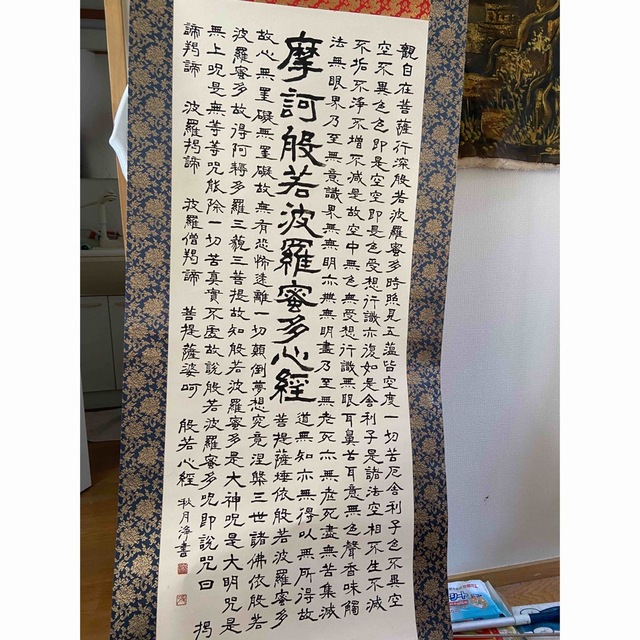 觀自在菩薩行深般若波羅蜜多時照見五蘊皆空度一切苦厄舍利子色不異空
空不異色色即是空空即是色受想行識亦復如是舍利子是諸法空相不生不滅
不垢不淨不增不減是故空中無色無受想行識無眼耳鼻舌身意無色聲香味觸
法無眼界乃至無意識界無無明亦無無明盡乃至無老死亦無老死盡無苦集滅
摩訶般若波羅蜜多心經
道無知亦無得以無所得故
菩提薩埵依般若波羅蜜多
故心無罣礙無罣礙故無有恐怖遠離一切顛倒夢想究竟涅槃三世諸佛依般若
波羅蜜多故得阿耨多羅三藐三菩提故知般若波羅蜜多是大神呪是大明呪是
無上呪是無等等呪能除一切苦真實不虛故說般若波羅蜜多呪即說呪曰 揭
諦羯諦 波羅羯諦 波羅僧羯諦 菩提薩婆呵 般若心經 秋月淨書